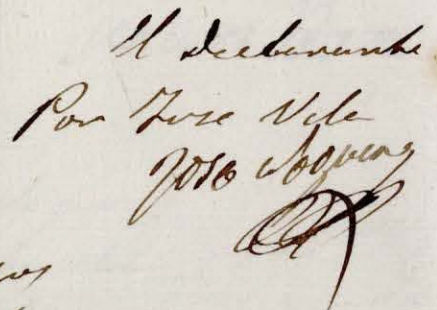 El declarante
Por Jose Vila
Jose Noguera